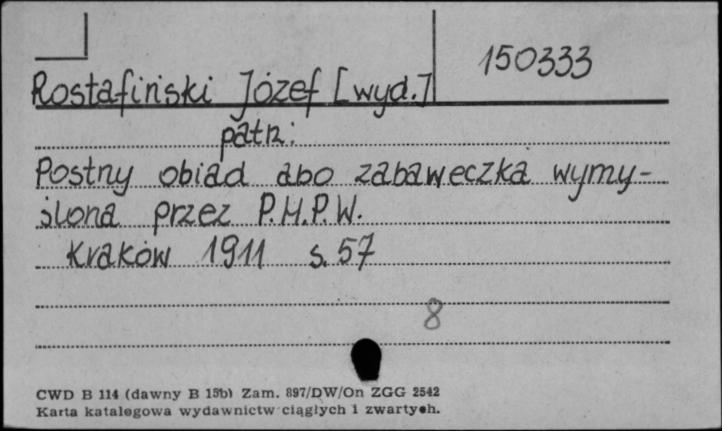 150333
Rostafiński Józef [wyd.]
patrz:
Postny obiad abo zabaweczka wymy-
ślona przez P.H.P.W.
Kraków 1911 s. 57
8
CWD B 114 (dawny B 15b) Zam. 897/DW/On ZGG 2542
Karta katalogowa wydawnictw ciągłych i zwartych.